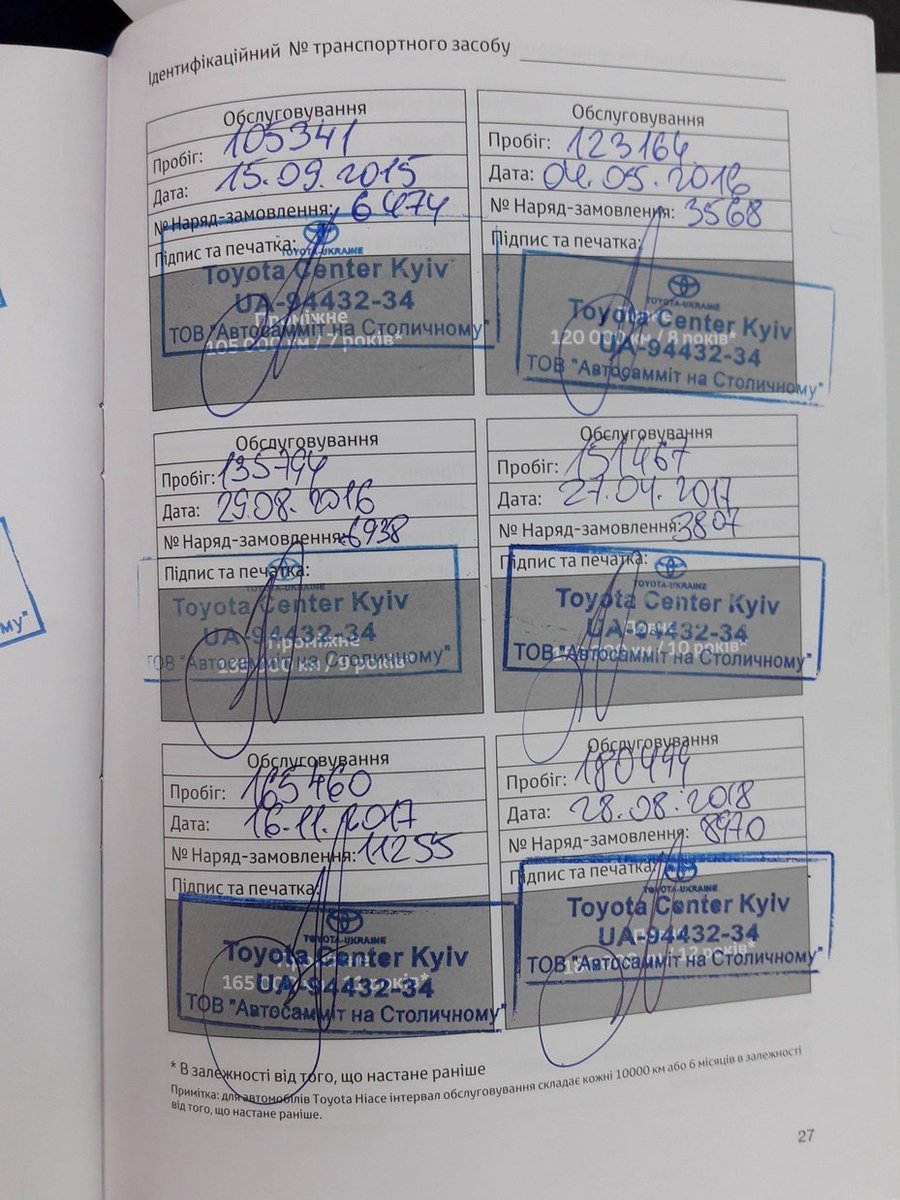 Ідентифікаційний № транспортного засобу
Обслуговування
Пробіг: 105341
Дата: 15.09.2015
№ Наряд-замовлення: 6474
Підпис та печатка:
TOYOTA-UKRAINE
Toyota Center Kyiv
UA-94432-34
Проміжне
ТОВ "Автосамміт на Столичному"
105 000 км / 7 років*
Обслуговування
Пробіг: 123164
Дата: 04.05.2016
№ Наряд-замовлення: 3568
Підпис та печатка:
TOYOTA-UKRAINE
Toyota Center Kyiv
UA-94432-34
120 000 км / 8 років*
ТОВ "Автосамміт на Столичному"
Обслуговування
Пробіг: 135794
Дата: 29.08.2016
№ Наряд-замовлення: 6938
Підпис та печатка:
Toyota Center Kyiv
UA-94432-34
Проміжне
ТОВ "Автосамміт на Столичному"
км / 9 років*
Обслуговування
Пробіг: 151467
Дата: 27.04.2017
№ Наряд-замовлення: 3807
Підпис та печатка:
TOYOTA-UKRAINE
Toyota Center Kyiv
UA-94432-34
/ 10 років*
ТОВ "Автосамміт на Столичному"
Обслуговування
Пробіг: 165460
Дата: 16.11.2017
№ Наряд-замовлення: 11255
Підпис та печатка:
TOYOTA-UKRAINE
Toyota Center Kyiv
UA-94432-34
165 років*
ТОВ "Автосамміт на Столичному"
Обслуговування
Пробіг:
Дата: 28.08.2018
№ Наряд-замовлення: 8970
Підпис та печатка:
TOYOTA-UKRAINE
Toyota Center Kyiv
UA-94432-34
/ 12 років*
ТОВ "Автосамміт на Столичному"
* В залежності від того, що настане раніше
Примітка: для автомобілів Toyota Hiace інтервал обслуговування складає кожні 10000 км або 6 місяців в залежності
від того, що настане раніше.
27